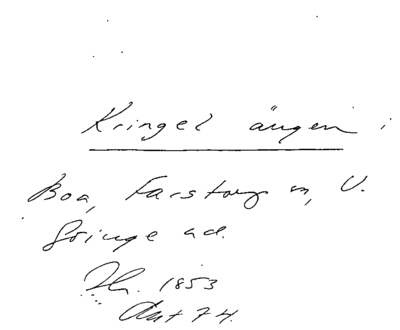 Kringel ängen i
Boa, Farstorp sn, V.
Göinge hd.
1853
74.